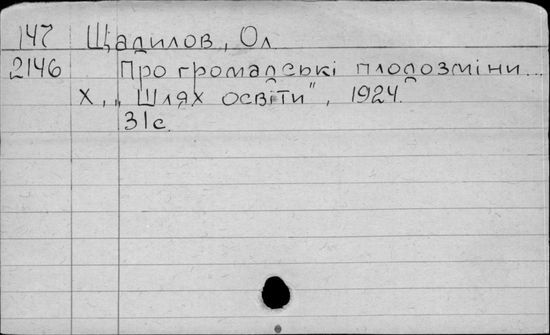 147 Щадилов, Ол
2146 Про громадські плодозміни...
Х., „Шлях освіти", 1924.
31с.